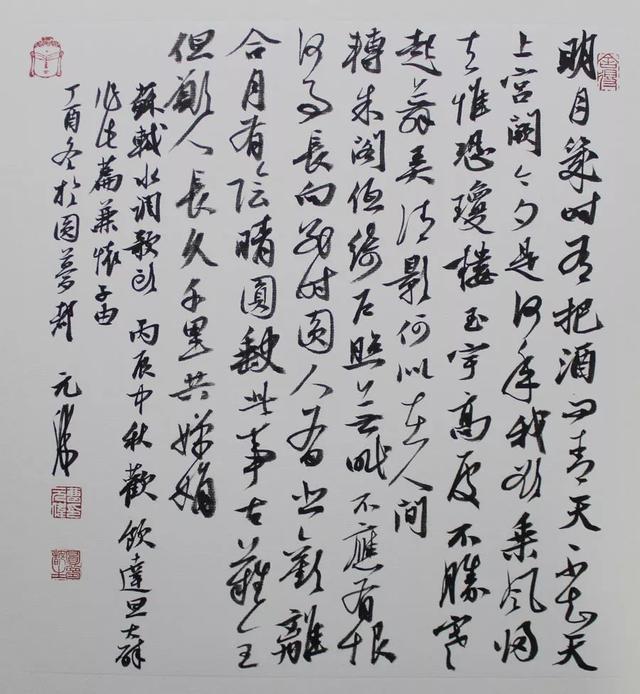 明月幾時有把酒問青天不知天
上宮闕今夕是何年我欲乘風歸
去惟恐瓊樓玉宇高處不勝寒
起舞弄清影何似在人間
轉朱閣低綺戶照無眠不應有恨
何事長向別時圓人有悲歡離
合月有陰晴圓缺此事古難全
但願人長久千里共嬋娟
蘇軾水調歌頭 丙辰中秋歡飲達旦大醉
作此篇兼懷子由
丁酉冬於圓夢 元